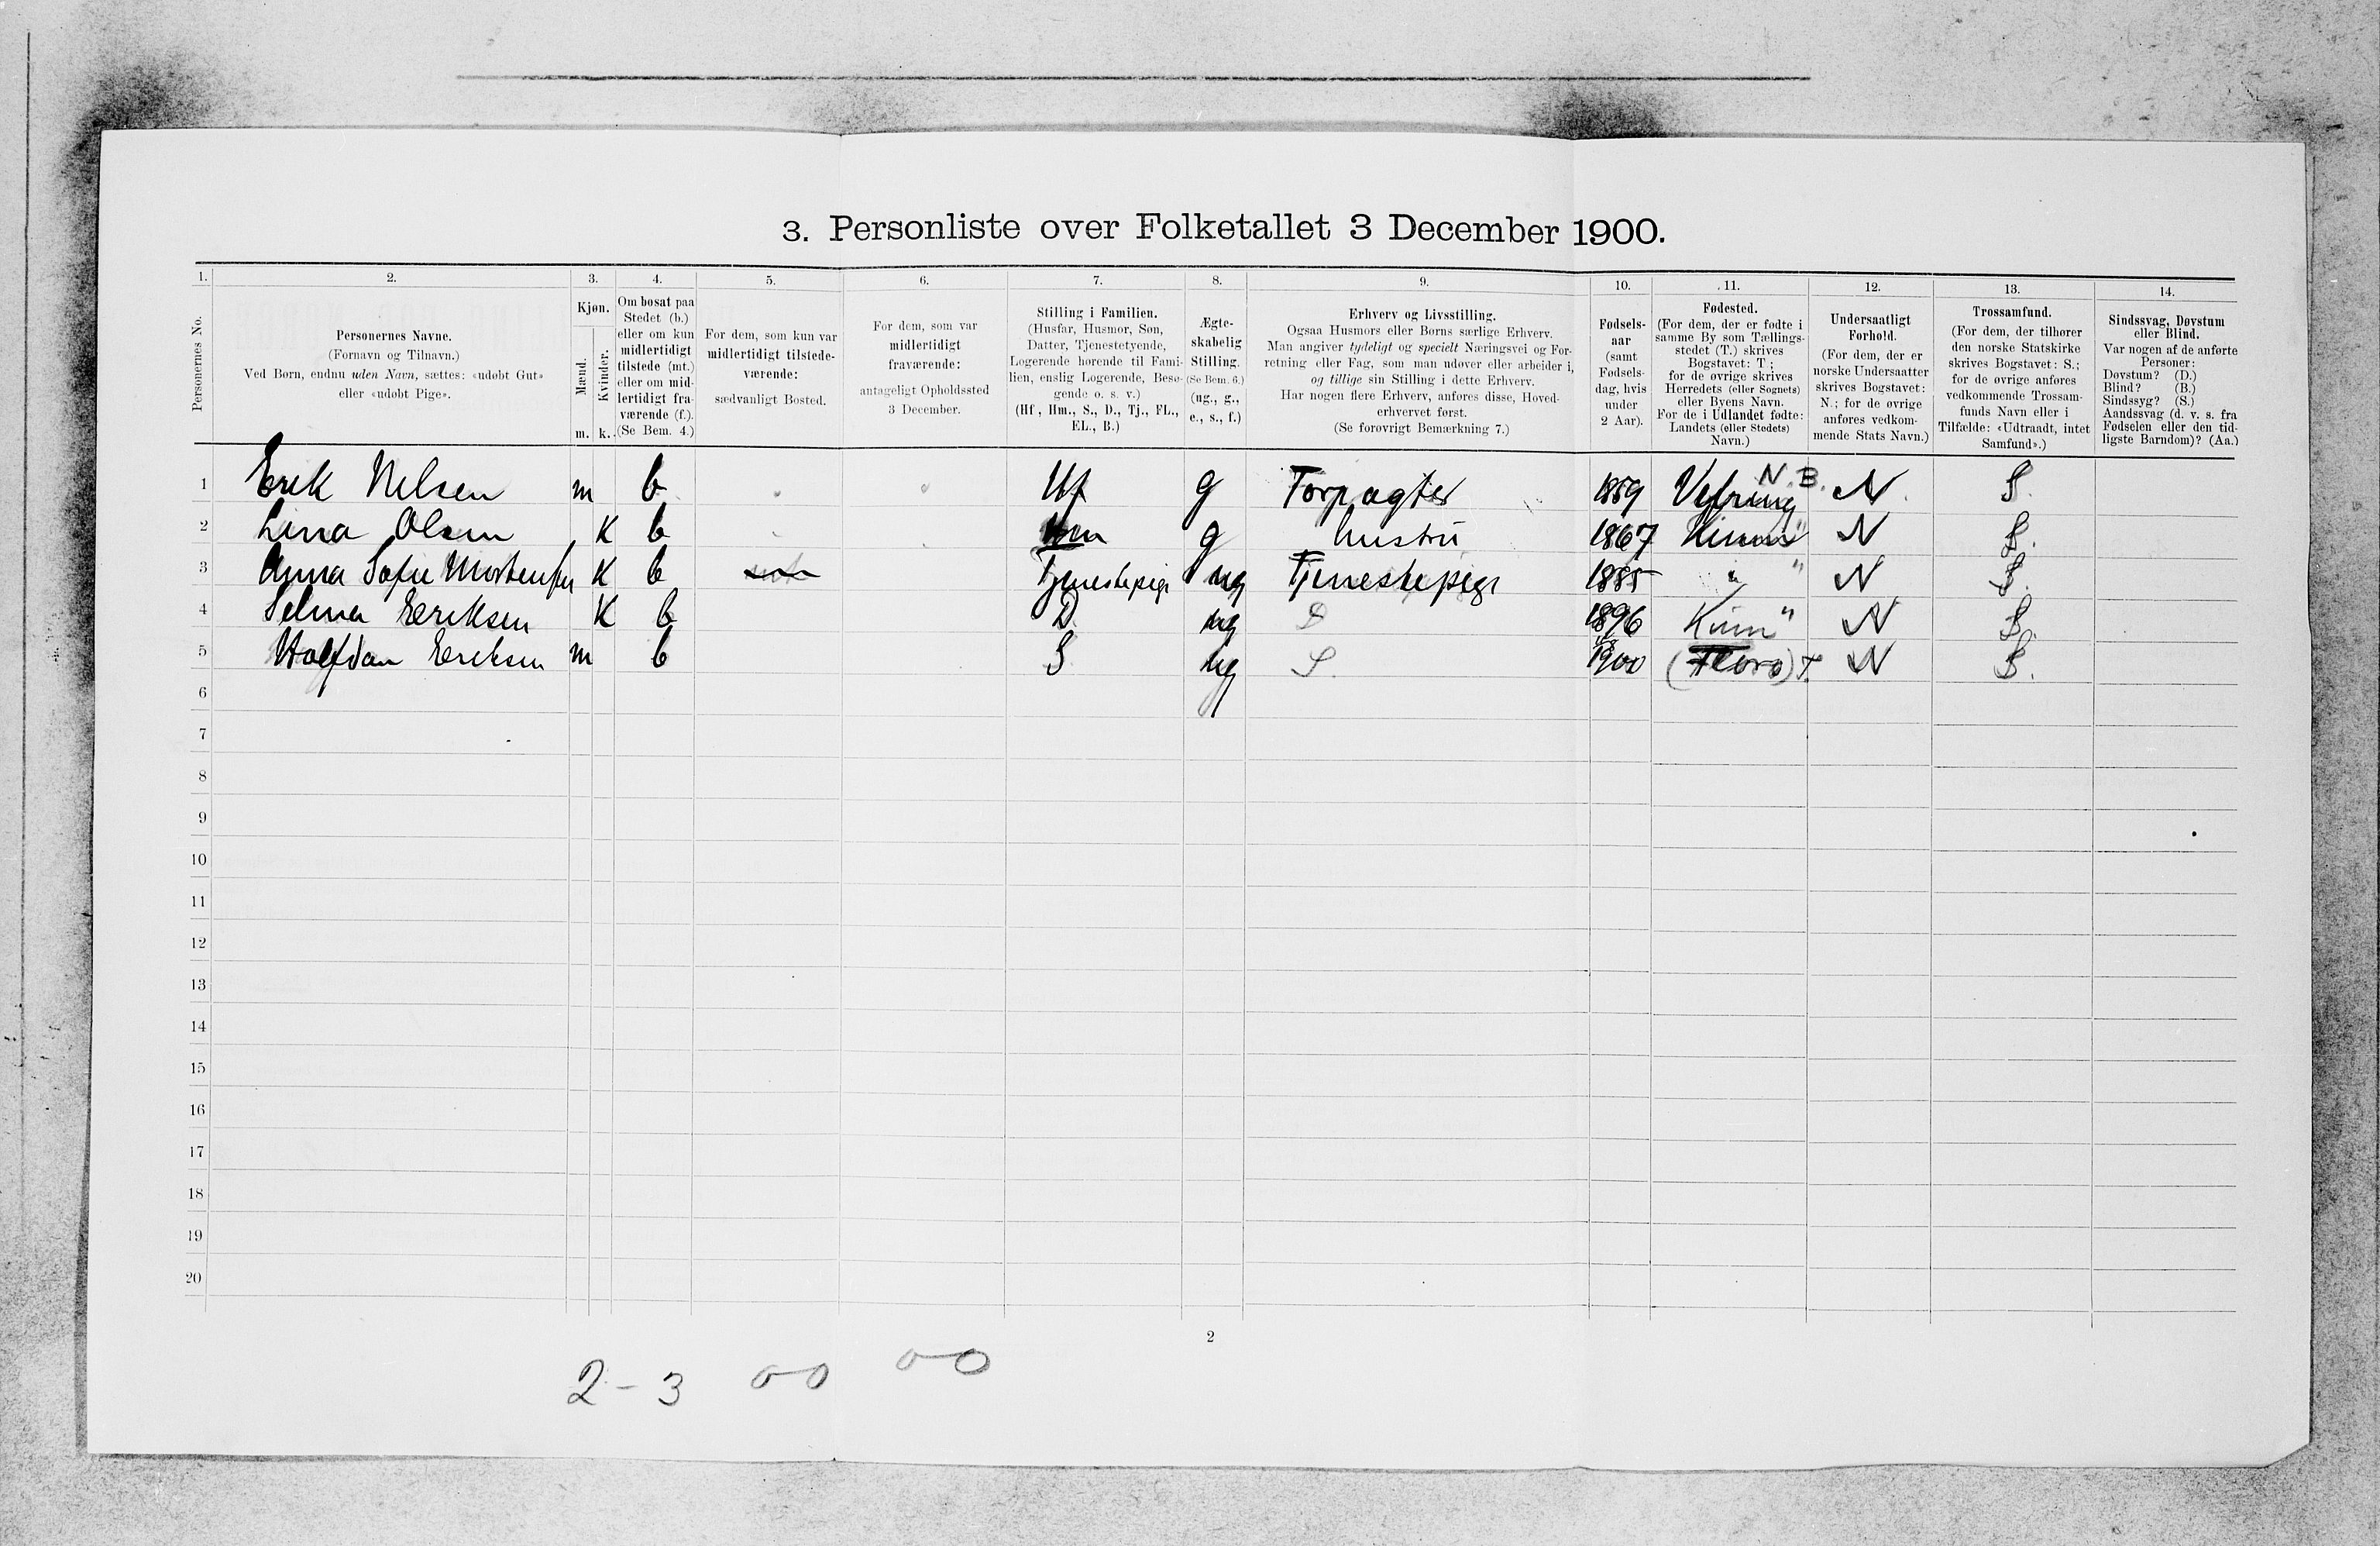 3. Personliste over Folketallet 3 December 1900.
1. 2. 3. 4. 5. 6. 7. 8. 9. 10. 11. 12. 13. 14.
Personernes No.
Personernes Navne.
(Fornavn og Tilnavn.)
Ved Børn, endnu uden Navn, sættes: «udøbt Gut»
eller «udøbt Pige».
Kjøn.
Mænd.
Kvinder.
m. k.
Om bosat paa
Stedet (b.)
eller om kun
midlertidigt
tilstede (mt.)
eller om mid-
lertidigt fra-
værende (f.).
(Se Bem. 4.)
For dem, som kun var
midlertidigt tilstede-
værende:
sædvanligt Bosted.
For dem, som var
midlertidigt
fraværende:
antageligt Opholdssted
3 December.
Stilling i Familien.
(Husfar, Husmor, Søn,
Datter, Tjenestetyende,
Logerende hørende til Fami-
lien, enslig Logerende, Besø-
gende o. s. v.)
(Hf., Hm., S., D., Tj., FL.,
EL., B.)
Ægte-
skabelig
Stilling.
(Se Bem. 6.)
(ug., g.,
e., s., f.)
Erhverv og Livsstilling.
Ogsaa Husmors eller Børns særlige Erhverv.
Man angiver tydeligt og specielt Næringsvei og For-
retning eller Fag, som man udøver eller arbeider i,
og tillige sin Stilling i dette Erhverv.
Har nogen flere Erhverv, anføres disse, Hoved-
erhvervet først.
(Se forøvrigt Bemærkning 7.)
Fødsels-
aar
(samt
Fødsels-
dag, hvis
under
2 Aar).
Fødested.
(For dem, der er fødte i
samme By som Tællings-
stedet (T.) skrives
Bogstavet: T.;
for de øvrige skrives
Herredets (eller Sognets)
eller Byens Navn.
For de i Udlandet fødte:
Landets (eller Stedets)
Navn.)
Undersaatligt
Forhold.
(For dem, der er
norske Undersaatter
skrives Bogstavet:
N.; for de øvrige
anføres vedkom-
mende Stats Navn.)
Trossamfund.
(For dem, der tilhører
den norske Statskirke
skrives Bogstavet: S.;
for de øvrige anføres
vedkommende Trossam-
funds Navn eller i
Tilfælde: «Udtraadt, intet
Samfund».)
Sindssvag, Døvstum
eller Blind.
Var nogen af de anførte
Personer:
Døvstum? (D.)
Blind? (B.)
Sindssyg? (S.)
Aandssvag (d. v. s. fra
Fødselen eller den tid-
ligste Barndom)? (Aa.)
1 Erik Nelsen m b Hf g Forpagter 1859 Vefring N. B. N. S.
2 Lina Olsen K b Hm g Hustru 1867 Kinn " N S.
3 Anna Sofie Mortensen K b Tjenestepige ug Tjenestepige 1885 " " N S.
4 Selma Eriksen K b D. ug D 1896 Kinn " N S.
5 Halfdan Eriksen m b S ug S. 1900 (Florø) T. N S.
6
7
8
9
10
11
12
13
14
15
16
17
18
19
20
2
2 - 3 0 0 0 0